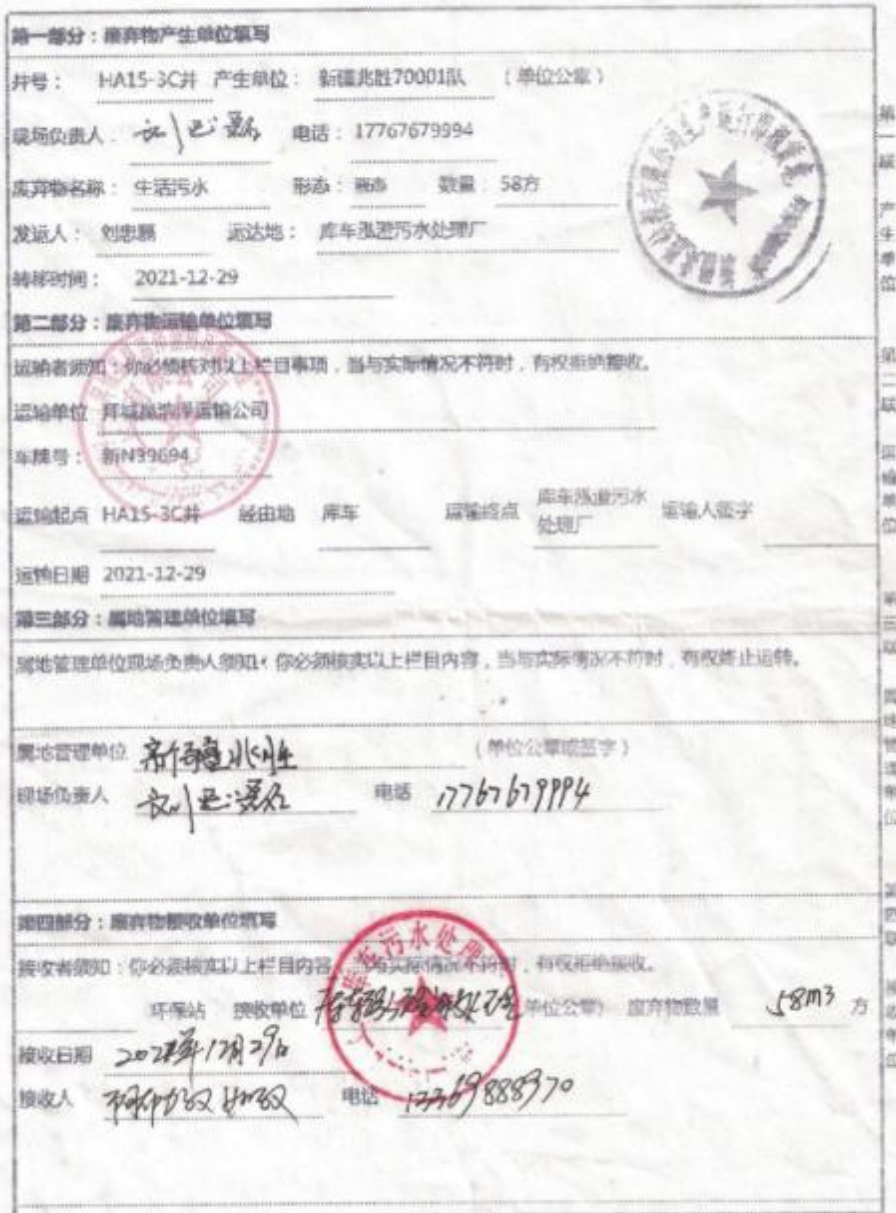 第一部分：废弃物产生单位填写
井号： HA15-3C井 产生单位： 新疆兆胜70001队 （单位公章）
现场负责人： 电话： 17767679994
废弃物名称： 生活污水 形态： 液态 数量： 58方
发运人： 刘忠鹏 运达地： 库车泓澄污水处理厂
转移时间： 2021-12-29
第二部分：废弃物运输单位填写
运输者须知：你必须核对以上栏目事项，当与实际情况不符时，有权拒绝接收。
运输单位 拜城 运输公司
车牌号： 新N39694
运输起点 HA15-3C井 经由地 库车 运输终点 库车泓澄污水处理厂 运输人签字
运输日期 2021-12-29
第三部分：属地管理单位填写
属地管理单位现场负责人须知：你必须核实以上栏目内容，当与实际情况不符时，有权终止运转。
属地管理单位 新疆兆胜 （单位公章或签字）
现场负责人 电话 17767679994
第四部分：废弃物接收单位填写
接收者须知：你必须核实以上栏目内容，当与实际情况不符时，有权拒绝接收。
环保站 接收单位 （单位公章） 废弃物数量 58m3 方
接收日期 2021年12月29日
接收人 电话 13369888970